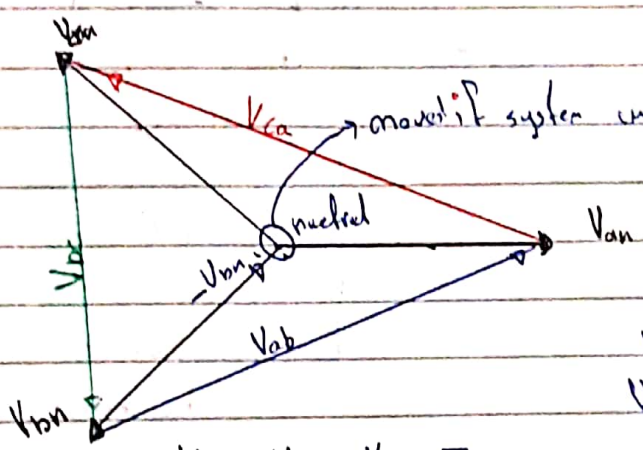 Vcn
Vca
move if system
nuetral
Van
-Vbn
Vbc
Vab
Vbn